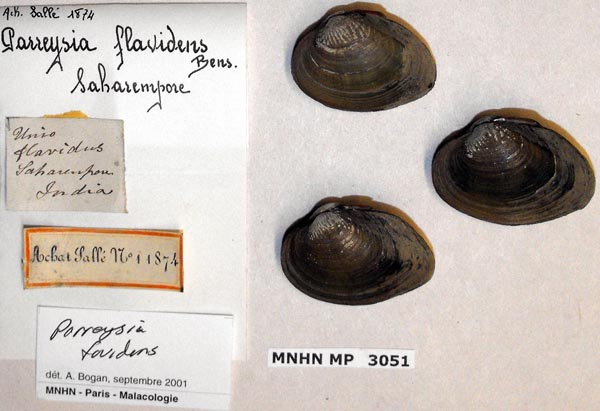 Ach. Sallé 1874
Parreysia flavidens
Bens.
Saharempore
Unio
flavidus
Saharenpou
India
Achat Sallé No 1 1874
Parreysia
favidens
dét. A. Bogan, septembre 2001
MNHN - Paris - Malacologie
MNHN MP 3051